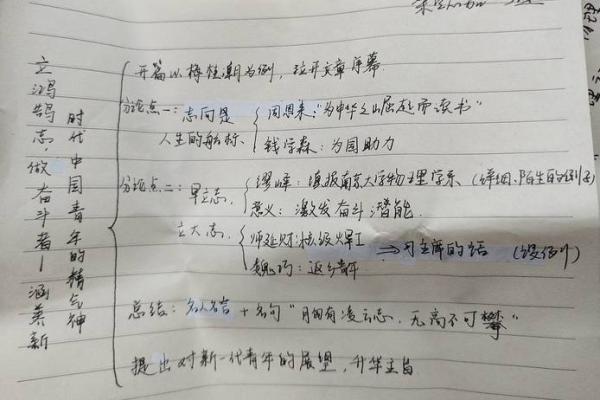 立鸿鹄志,做奋斗者—涵养新
时代中国青年的精气神
开篇以梅桂潮为例,拉开文章序幕.
分论点一:志向是
人生的航标.
周恩来:"为中华之崛起而读书"
钱学森:为国助力
分论点二:早立志.
缪峰:填报南京大学物理学系 (详细、陌生的例子)
意义:激发奋斗潜能.
立大志.
师延财:高级焊工
魏巧:返乡青年
⇒习主席的话
总结:名人名言+名句"胸有凌云志,无高不可攀"
提出对新一代青年的展望,升华主旨